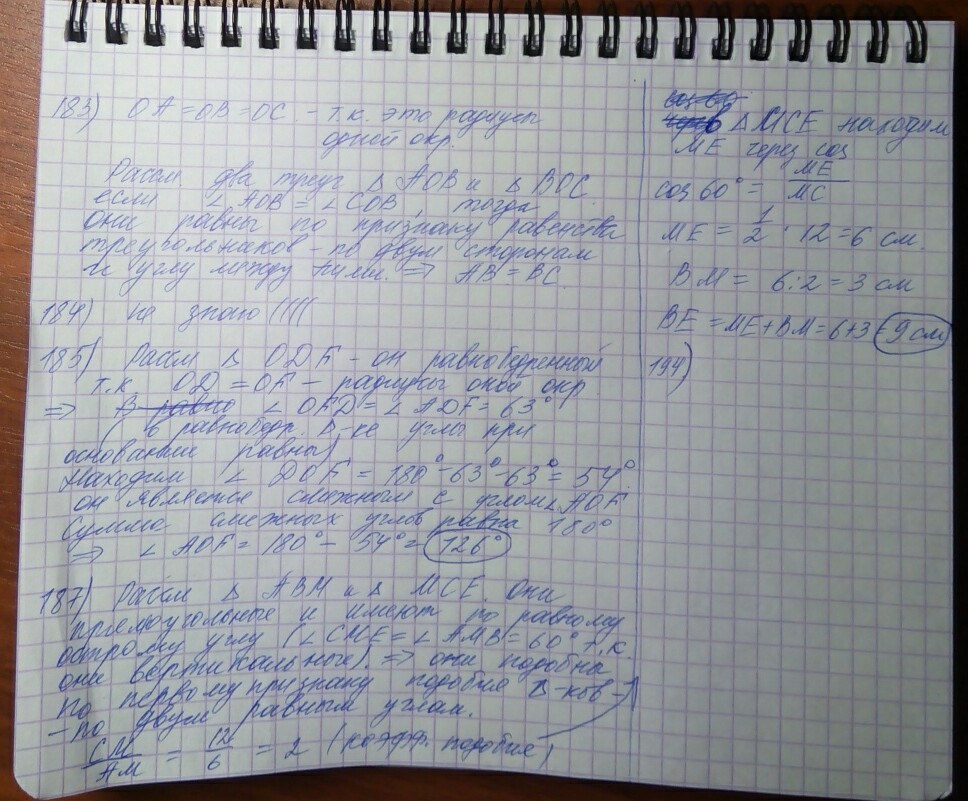 183) OA = OB = OC - т.к. это радиусы
одной окр.
Рассм. два треуг Δ AOB и Δ BOC
если ∠ AOB = ∠ COB, тогда
они равны по признаку равенства
треугольников - по двум сторонам
и углу между ними. ⇒ AB = BC.
184) не знаю ((((
185) Рассм Δ ODF - он равнобедренный
т.к. OD = OF - радиусы окр
⇒ ∠ OFD = ∠ ADF = 63°
( в равнобедр. Δ-ке углы при
основании равны)
Находим ∠ DOF = 180° - 63° - 63° = 54°
он является смежным с углом ∠ AOF
Сумма смежных углов равна 180°
⇒ ∠ AOF = 180° - 54° = 126°
187) Рассм Δ ABM и Δ MCE. они
прямоугольные и имеют по равному
острому углу (∠ CME = ∠ AMB = 60° т.к.
они вертикальные). ⇒ они подобны
по первому признаку подобия Δ-ков -
- по двум равным углам.
CM/AM = 12/6 = 2 (коэфф. подобия)
Δ MCE находим
ME через cos
cos 60° = ME/MC
ME = 1/2 · 12 = 6 см.
BM = 6 : 2 = 3 см
BE = ME + BM = 6 + 3 = 9 см
194)